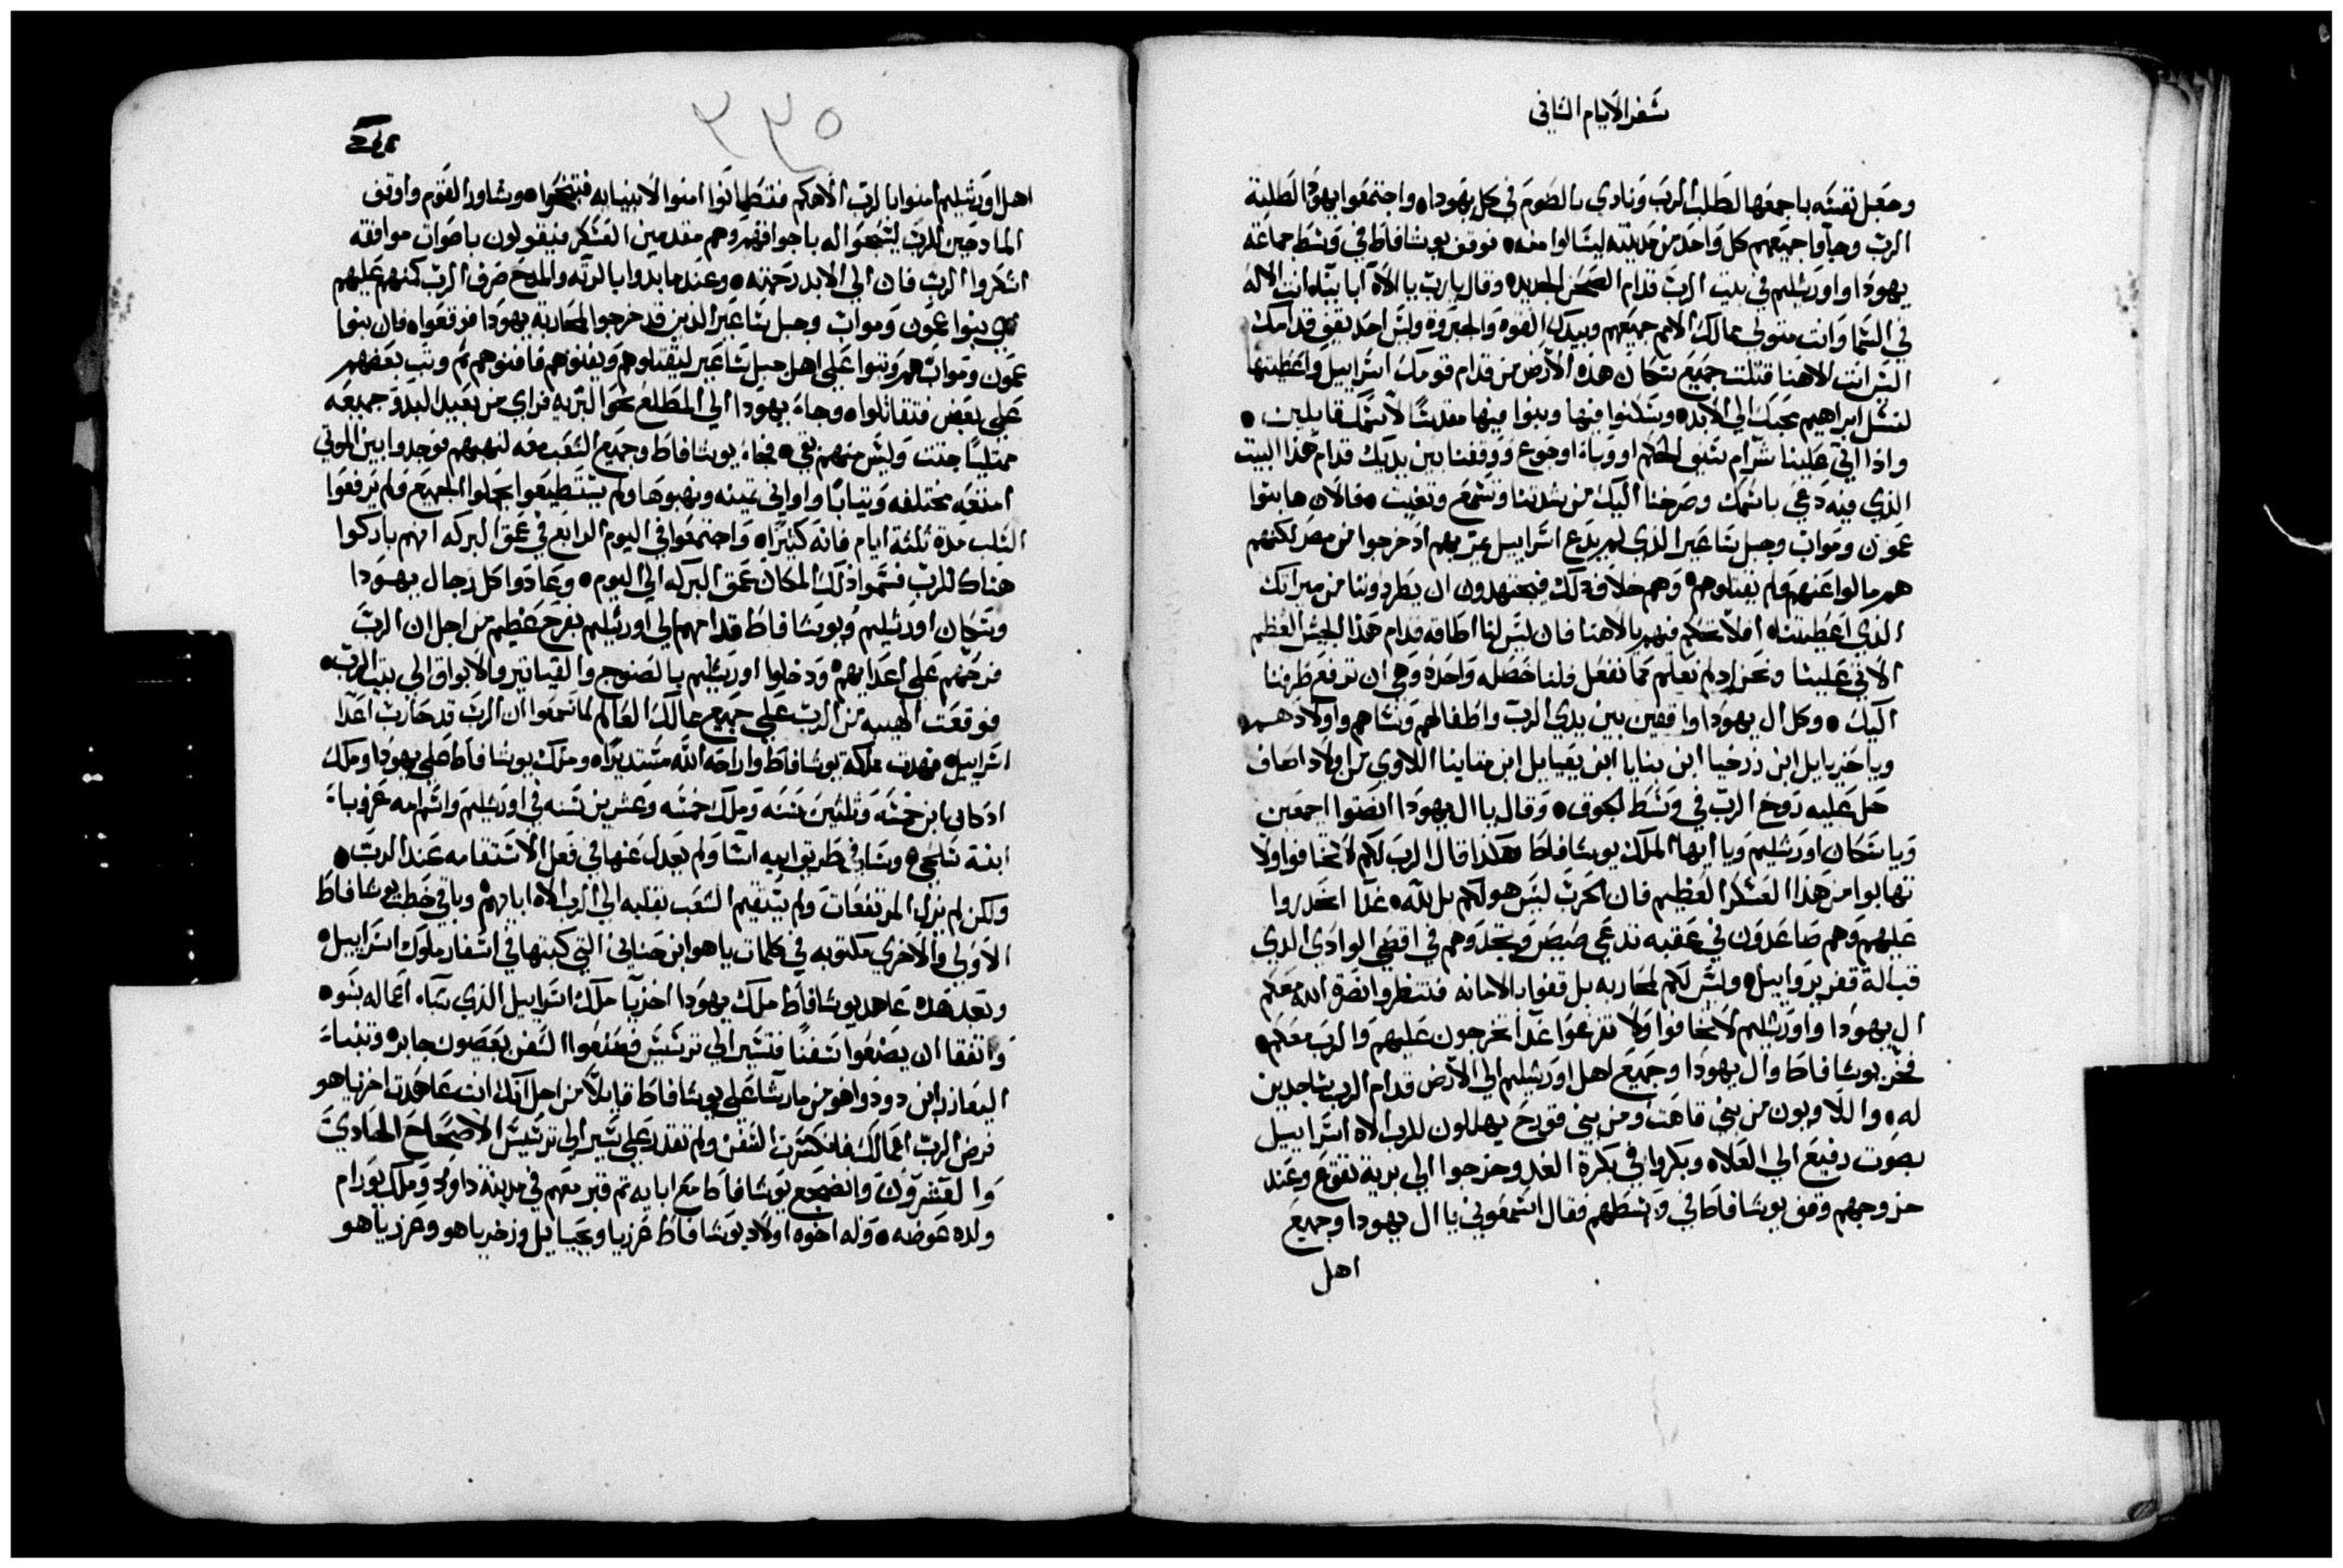 سفر الايام الثاني
وجعل نفسه باجمعها لطلب الرب ونادي بالصوم في كل يهودا واجتمعوا يهودا لطلبة
الرب وجاوا جميعهم كل واحد من مدينته ليسالوا منه فوقف يوشافاط في وسط جماعة
يهودا واورشليم في بيت الرب قدام الصحن الجديد وقال يا رب يا الاه ابايناه انت الاله
في السما وانت متولي ممالك الامم جميعهم وبيدك القوه والجبروة وليس احد يقف قدامك
اليس انت الاهنا قتلت جميع سكان هذه الارض من قدام قومك اسراييل واعطيتها
لنسل ابراهيم محبك الي الابد وسكنوا فيها وبنوا فيها مقدسًا لاسمك قايلين
واذا اتي علينا شر ام سيف الحكم او وباء او جوع ووقفنا بين يديك قدام هذا البيت
الذي فيه دعي باسمك وصرخنا اليك من شدتنا وتسمع وتغيث فالان هابنوا
عمون ومواب وجبل ساعير الذي لم يدع اسراييل يمر بهم اذ خرجوا من مصر لكنهم
هم مالوا عنهم ولم يقتلوهم وهم خلاف ذلك فيجتهدون ان يطردوننا من ميراثك
الذي اعطيتناه افلا تحكم فيهم يا الاهنا فان ليس لنا طاقه قدام هذا الجيش العظيم
الاتي علينا ونحن اذ لم نعلم مما نفعل فلنا خصله واحده وهي ان نرفع طرفنا
اليك وكل ال يهودا واقفين بين يدي الرب واطفالهم ونساهم واولادهم
وياحزيايل ابن زرخيا ابن بنايا ابن يعيايل ابن متاينا اللاوي من اولاد اصاف
حل عليه روح الرب في وسط الجوق وقال يا ال يهودا انصتوا اجمعين
ويا سكان اورشليم ويا ايها الملك يوشافاط هكذا قال الرب لكم لا تخافوا ولا
تهابوا من هذا العسكر العظيم فان الحرب ليس هو لكم بل لله غدًا انحدروا
عليهم وهم صاعدون في عقبه تدعي صيص وتجدوهم في اقصي الوادي الذي
قبالة قفر يروابيل وليس لكم لمحاربه بل قفوا بالامانه فتنظروا نصرة الله معكم
ال يهودا واورشليم لا تخافوا ولا تفزعوا غدًا تخرجون عليهم والرب معكم
فخر يوشافاط وال يهودا وجميع اهل اورشليم الي الارض قدام الرب ساجدين
له واللاويون من بني قاهت ومن بني قورح يهللون للرب الاه اسراييل
بصوت رفيع الي العلاه وبكروا في بكرة الغد وخرجوا الي برية تقوع وعند
خروجهم وقف يوشافاط في وسطهم فقال اسمعوني يا ال يهودا وجميع
اهل
٣٣٥
اهل اورشليم امنوا بالرب الاهكم فتطمانوا امنوا لانبيايه فتنجحوا وشاور القوم واوقف
المادحين للرب ليسبحوا له باجواقهم وهم مقدمين العسكر فيقولون باصوات موافقه
اشكروا الرب فان الي الابد رحمته وعندما بدوا بالرنه والمدح صرف الرب كمنهم عليهم
بنوا عمون ومواب وجبل ساعير الذين قد خرجوا لمحاربه يهودا فوقعوا فان بنوا
عمون ومواب هم وثبوا علي اهل جبل ساعير ليقتلوهم ويفنوهم فافنوهم ثم وثب بعضهم
علي بعض فتقاتلوا وجاء يهودا الي المطلع نحو البريه فراي من بعيد البدو جميعه
ممتليًا جثث وليس منهم بقي فجاء يوشافاط وجميع الشعب معه لنهبهم فوجدوا بين الموتي
امتعه مختلفه وثيابًا واواني ثمينه ونهبوها ولم يستطيعوا يحملوا الجميع ولم يرفعوا
السلب مدة ثلثة ايام فانه كثيرًا واجتمعوا في اليوم الرابع في عمق البركه انهم باركوا
هناك للرب فسموا ذلك المكان عمق البركه الي اليوم وعادوا كل رجال يهودا
وسكان اورشليم ويوشافاط قدامهم الي اورشليم بفرح عظيم من اجل ان الرب
فرحهم علي اعدايهم ودخلوا اورشليم بالصنوج والقياتير والابواق الي بيت الرب
فوقعت الهيبه من الرب علي جميع ممالك العالم لما سمعوا ان الرب قد حارب اعدا
اسراييل فهدت مملكة يوشافاط واراحه الله مستديرًا وملك يوشافاط علي يهودا وملك
اذ كان ابن خمسه وثلثين سنه وملك خمسه وعشرين سنه في اورشليم واسم امه عزوباء
ابنة شلحي وسار في طريق ابيه اسا ولم يعدل عنها في فعل الاستقامه عند الرب
ولكن لم يزل المرتفعات ولم يستقيم الشعب بقلبه الي الرب الاه ابايهم وباقي خطب يوشافاط
الاولي والاخري مكتوبه في كلمات ياهو ابن حناني التي كتبها في اسفار ملوك اسراييل
وبعد هذه عاهد يوشافاط ملك يهودا اخزيا ملك اسراييل الذي سباه اعماله بسوه
واتفقا ان يصنعوا سفنًا فتسير الي ترشيش فصنعوا السفن بعصيون جابر وتنباء
اليعازر ابن دودواهو من ماريشا علي يوشافاط قايلاً من اجل انك انت عاهدت اخزياهو
فرض الرب اعمالك فانكسرت السفن ولم تقدر علي سير الي ترشيش الاصحاح الحادي
والعشرون وانضجع يوشافاط مع ابايه ثم قبر معهم في مدينة داود وملك يورام
ولده عوضه وله اخوه اولاد يوشافاط عزريا ويحيايل وزخرياهو وعزرياهو